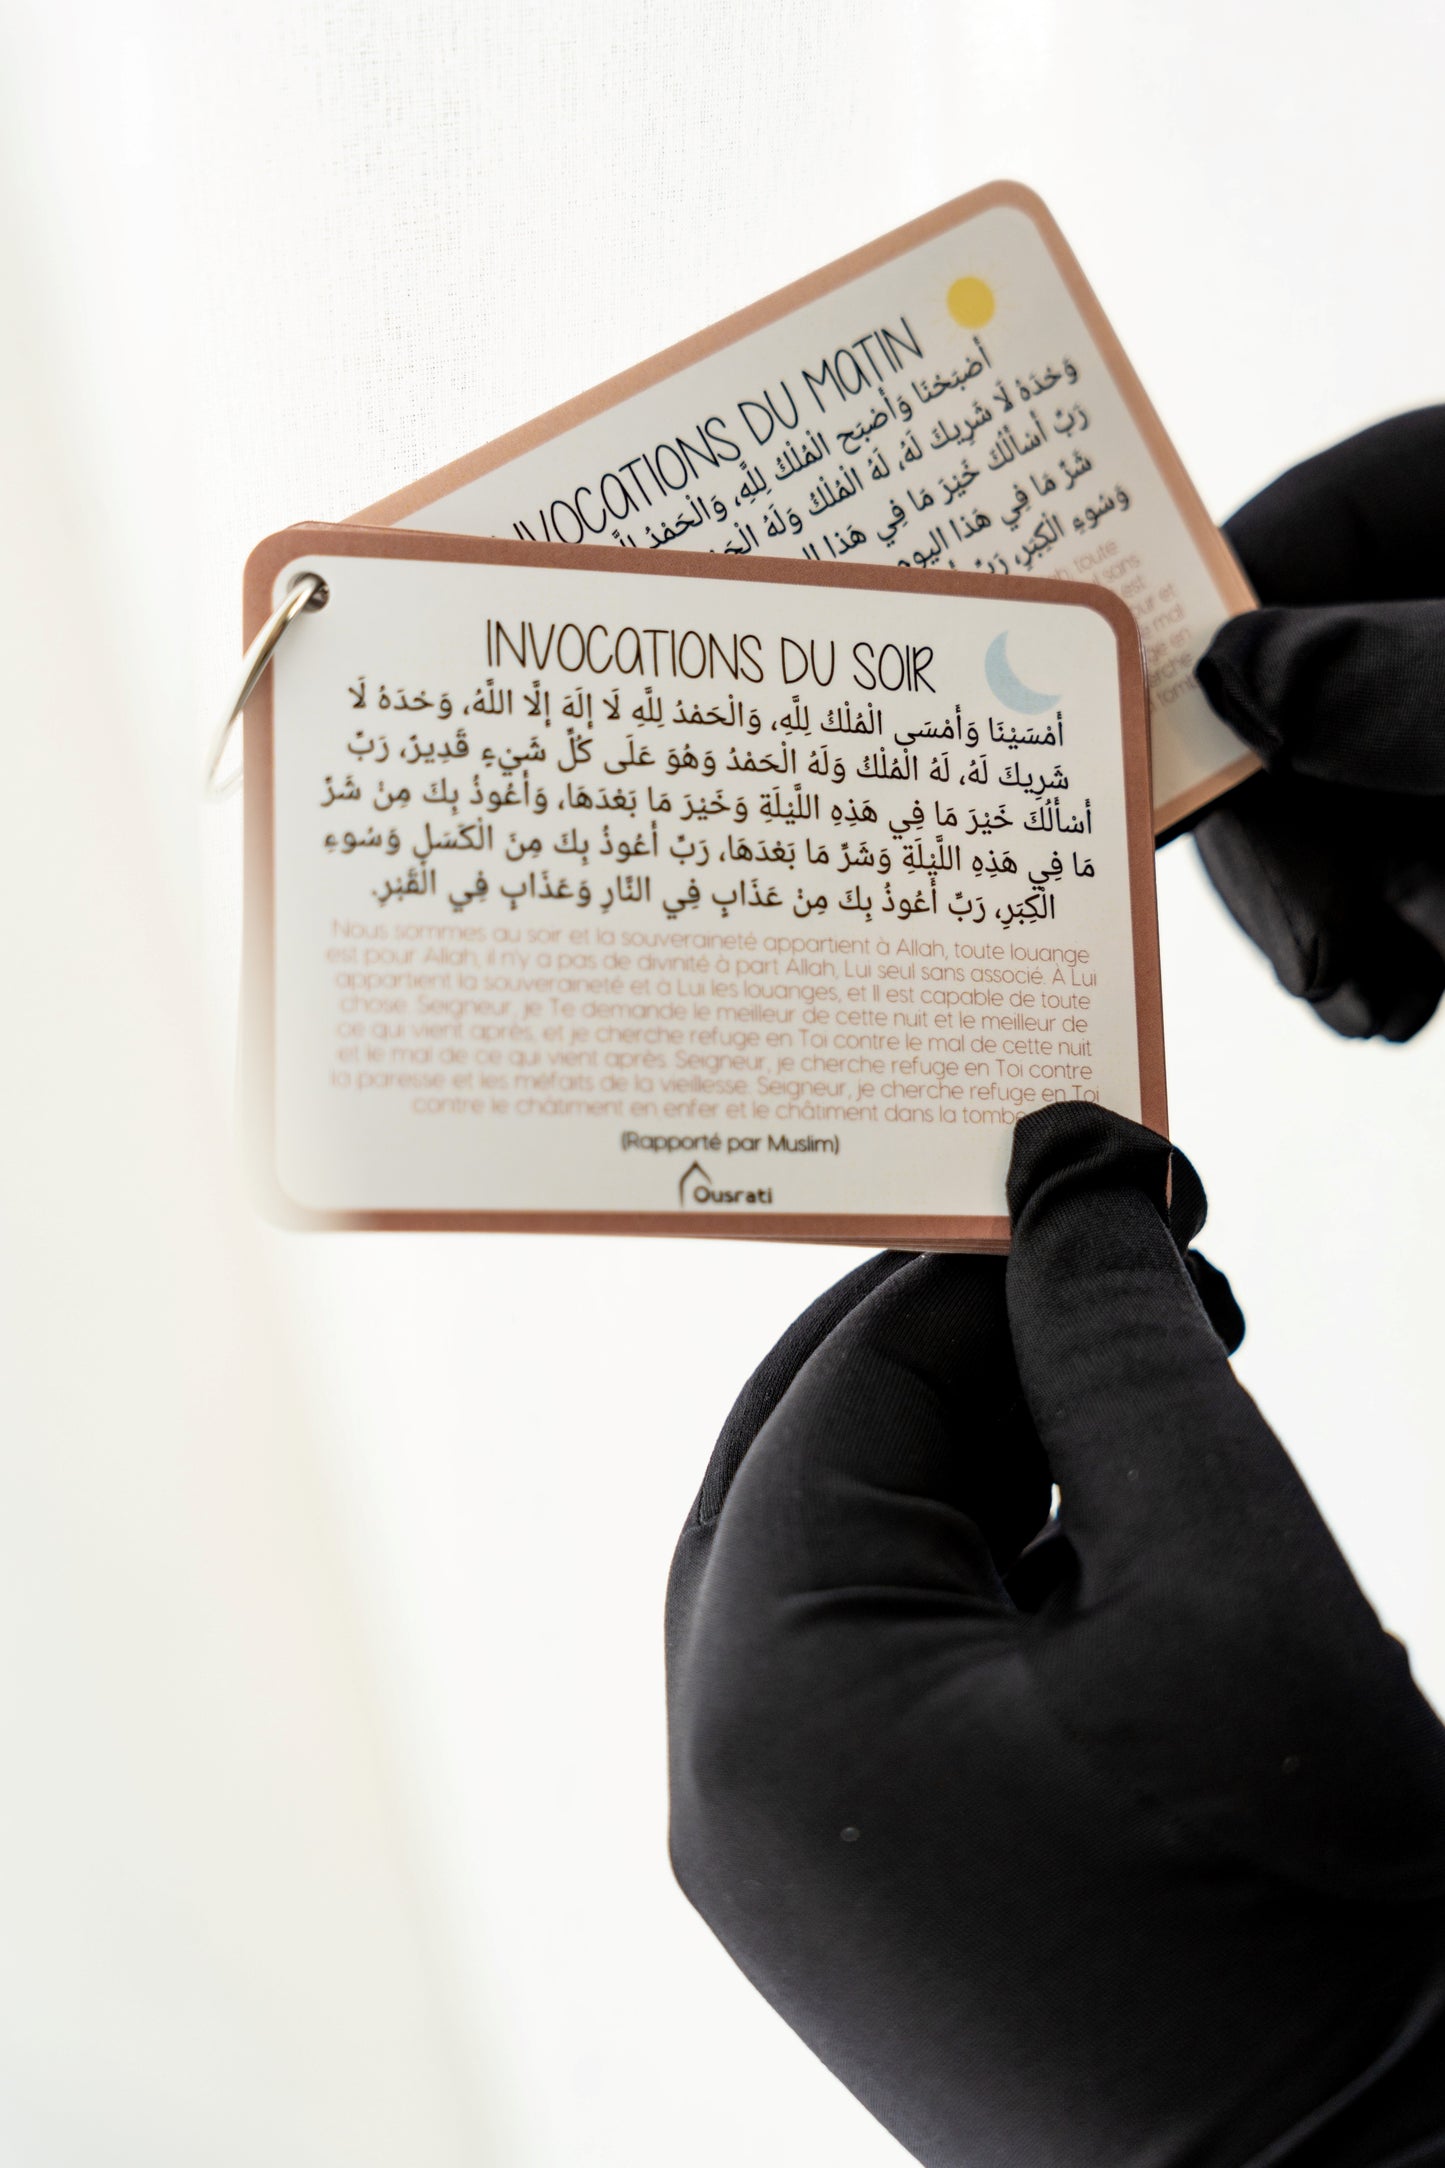 INVOCATIONS DU MATIN
أَصْبَحْنَا وَأَصْبَح الْمُلْكُ لِلَّهِ، وَالْحَمْدُ
وَحْدَهُ لَا شَرِيكَ لَهُ، لَهُ الْمُلْكُ وَلَهُ
رَبِّ أَسْأَلُكَ خَيْرَ مَا فِي هَذا
شَرِّ مَا فِي هَذا اليوم
وَسُوءِ الْكِبَرِ، رَبِّ
toute
sans
est
et
mal
en
INVOCATIONS DU SOIR
أَمْسَيْنَا وَأَمْسَى الْمُلْكُ لِلَّهِ، وَالْحَمْدُ لِلَّهِ لَا إِلَهَ إِلَّا اللَّهُ، وَحْدَهُ لَا
شَرِيكَ لَهُ، لَهُ الْمُلْكُ وَلَهُ الْحَمْدُ وَهُوَ عَلَى كُلِّ شَيْءٍ قَدِيرٌ، رَبِّ
أَسْأَلُكَ خَيْرَ مَا فِي هَذِهِ اللَّيْلَةِ وَخَيْرَ مَا بَعْدَهَا، وَأَعُوذُ بِكَ مِنْ شَرِّ
مَا فِي هَذِهِ اللَّيْلَةِ وَشَرِّ مَا بَعْدَهَا، رَبِّ أَعُوذُ بِكَ مِنَ الْكَسَلِ وَسُوءِ
الْكِبَرِ، رَبِّ أَعُوذُ بِكَ مِنْ عَذَابٍ فِي النَّارِ وَعَذَابٍ فِي الْقَبْرِ.
Nous sommes au soir et la souveraineté appartient à Allah, toute louange
est pour Allah, il n'y a pas de divinité à part Allah, Lui seul sans associé. À Lui
appartient la souveraineté et à Lui les louanges, et Il est capable de toute
chose. Seigneur, je Te demande le meilleur de cette nuit et le meilleur de
ce qui vient après, et je cherche refuge en Toi contre le mal de cette nuit
et le mal de ce qui vient après. Seigneur, je cherche refuge en Toi contre
la paresse et les méfaits de la vieillesse. Seigneur, je cherche refuge en Toi
contre le châtiment en enfer et le châtiment dans la tombe
(Rapporté par Muslim)
Ousrati